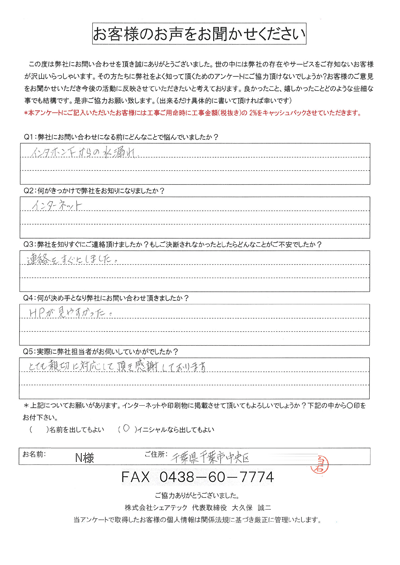 お客様のお声をお聞かせください
この度は弊社にお問い合わせを頂き誠にありがとうございました。世の中には弊社の存在やサービスをご存知ないお客様
が沢山いらっしゃいます。その方たちに弊社をよく知って頂くためのアンケートにご協力頂けないでしょうか？お客様のご意見
をお聞かせいただき今後の活動に反映させていただきたいと考えております。良かったこと、嬉しかったことどのような些細な
事でも結構です。是非ご協力お願い致します。（出来るだけ具体的に書いて頂ければ幸いです）
*本アンケートにご記入いただいたお客様には工事ご用命時に工事金額(税抜き)の2%をキャッシュバックさせていただきます。
Q1：弊社にお問い合わせになる前にどんなことで悩んでいましたか？
インターホン下からの水漏れ
Q2：何がきっかけで弊社をお知りになりましたか？
インターネット
Q3：弊社を知りすぐにご連絡頂けましたか？もしご決断されなかったとしたらどんなことがご不安でしたか？
連絡をすぐにしました。
Q4：何が決め手となり弊社にお問い合わせ頂きましたか？
HPが見やすかった。
Q5：実際に弊社担当者がお伺いしていかがでしたか？
とても親切に対応して頂き感謝しております
＊上記についてお願いがあります。インターネットや印刷物に掲載させて頂いてもよろしいでしょうか？下記の中から○印を
お付下さい。
（　）名前を出してもよい　（○）イニシャルなら出してもよい
お名前：　N様　ご住所：　千葉県千葉市中央区
FAX 0438－60－7774
ご協力ありがとうございました。
株式会社シェアテック　代表取締役　大久保　誠二
当アンケートで取得したお客様の個人情報は関係法規に基づき厳正に管理いたします。